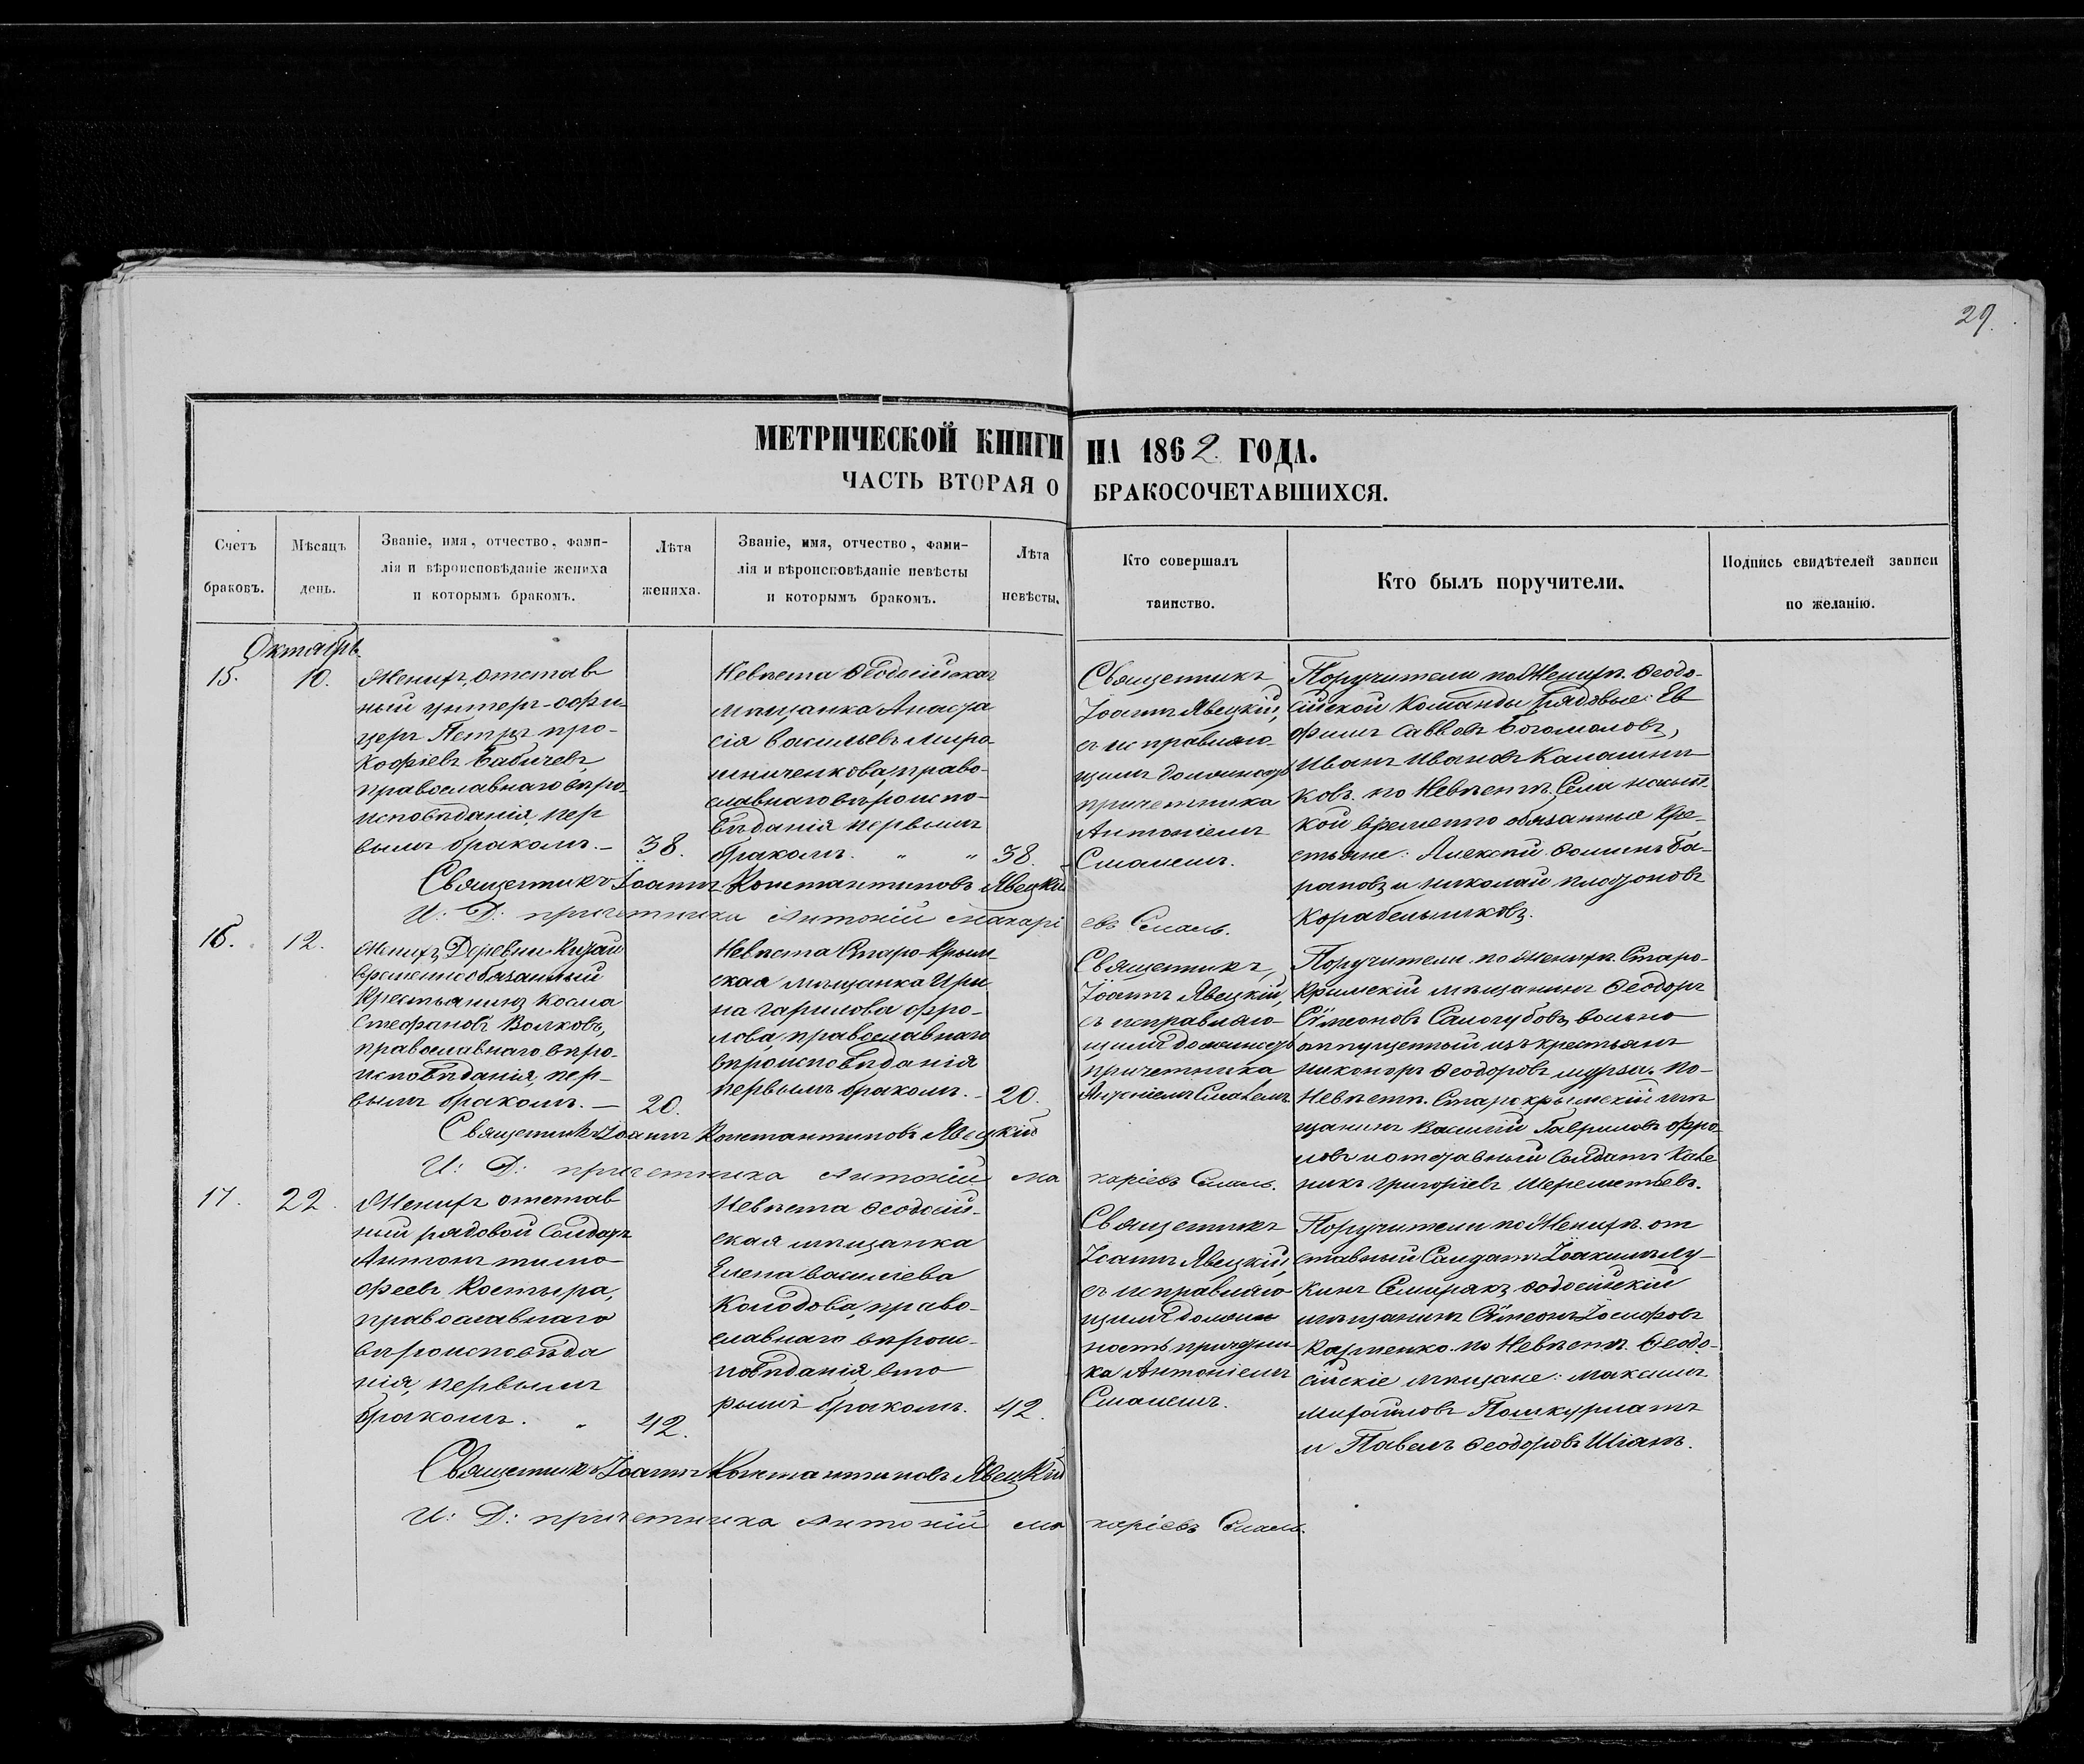 29.
МЕТРИЧЕСКОЙ КНИГИ НА 1862 ГОДА.
ЧАСТЬ ВТОРАЯ О БРАКОСОЧЕТАВШИХСЯ.
Счетъ браковъ.
Мѣсяцъ день.
Званіе, имя, отчество, фами-
лія и вѣроисповѣданіе жениха
и которымъ бракомъ.
Лѣта жениха.
Званіе, имя, отчество, фами-
лія и вѣроисповѣданіе невѣсты
и которымъ бракомъ.
Лѣта невѣсты.
Кто совершалъ
таинство.
Кто былъ поручители.
Подпись свидѣтелей записи
по желанію.
Октябрь
15.
10.
Женихъ, отстав
ный унтеръ-офи-
церъ Петръ про-
кофіевъ Бабичевъ,
православнаго вѣро-
исповѣданія, пер
вымъ бракомъ.—
38.
Невѣста Ѳеодосійская
мѣщанка Анаста
сія васильевъ Миро
шниченкова, право-
славнаго вѣроиспо-
вѣданія первымъ
бракомъ. " "
38.
Священникъ
Іоаннъ Явецкій,
съ исправляю-
щимъ должность
причетника
Антоніемъ
Смалемъ.
Поручители по Женихѣ. Ѳеодо-
сійской Команды рядовые: Ев
фимъ Саввовъ Богомоловъ,
Иванъ Ивановъ Калашни
ковъ. по Невѣстѣ. Села насып-
кой временно обязанные Кре-
стьяне: Алексѣй Ѳоминъ Ба-
рановъ и николай
Корабельниковъ.
Священникъ Іоаннъ Константиновъ Явецкій
И: Д: причетника Антоній Макарі евъ Смаль.
16.
12.
Женихъ, Деревни
временнообязанный
Крестьянинъ Косма
Стефановъ Волковъ,
православнаго вѣро-
исповѣданія, пер-
вымъ бракомъ.—
20.
Невѣста Старо-Крым-
ская мѣщанка Ири
на гарилова фро-
лова, православнаго
вѣроисповѣданія
первымъ бракомъ.—
20.
Священникъ,
Іоаннъ Явецкій,
съ исправляю-
щимъ должность
причетника
Антоніемъ Смалемъ
Поручители. по Женихѣ. Старо-
Кримскій мѣщанинъ Ѳеодоръ
Сѵмеоновъ Самогубовъ, вольно
отпущенный изъ крестьянъ
никоноръ Ѳеодоровъ мурза. По-
Невѣстѣ. Старокрымскій мѣ
щанинъ Василій Гавриловъ Фро-
ловъ и отставный Солдатъ Кале
никъ григоріевъ Шереметьевъ.
Священникъ Іоаннъ Константиновъ Явецкій
И: Д: причетника Антоній Ма каріевъ Смаль.
17.
22.
Женихъ отстав
ный рядовой Солдатъ
Антонъ тимо-
феевъ Костыра,
православнаго
вѣроисповѣда
нія, первымъ
бракомъ. "
42.
Невѣста Ѳеодосій-
ская мѣщанка
Елена василіева
Колодова, право-
славнаго вѣроис-
повѣданія, вто
рымъ бракомъ.
42.
Священникъ
Іоаннъ Явецкій,
съ исправляю
щимъ долж
ность причетни-
ка Антоніемъ
Смалемъ.
Поручители по Женихѣ. от
ставный Салдатъ Іоакимъ Лу-
кинъ Семиряхъ, Ѳодосійскій
мѣщанинъ Сѵмеонъ Іосифовъ
Карпенко. по Невѣстѣ. Ѳеодо-
сійскіе мѣщане: максимъ
Михайловъ Помкурматъ
и Павелъ Ѳеодоровъ Шіянъ.
Священникъ Іоаннъ Константиновъ Явецкій
И: Д: причетника Антоній Ма каріевъ Смаль.